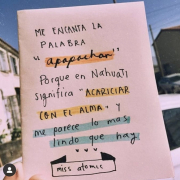 ME ENCANTA LA
PALABRA
"apapachar"
Porque en Nahuatl
significa "ACARICIAR
CON EL ALMA" y
me parece lo mas
lindo que hay
miss atomic